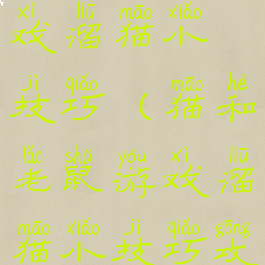 xì liū māo xiǎo
戏溜猫小
jì qiǎo māo hé
技巧(猫和
lǎo shǔ yóu xì liū
老鼠游戏溜
māo xiǎo jì qiǎo gōng
猫小技巧攻